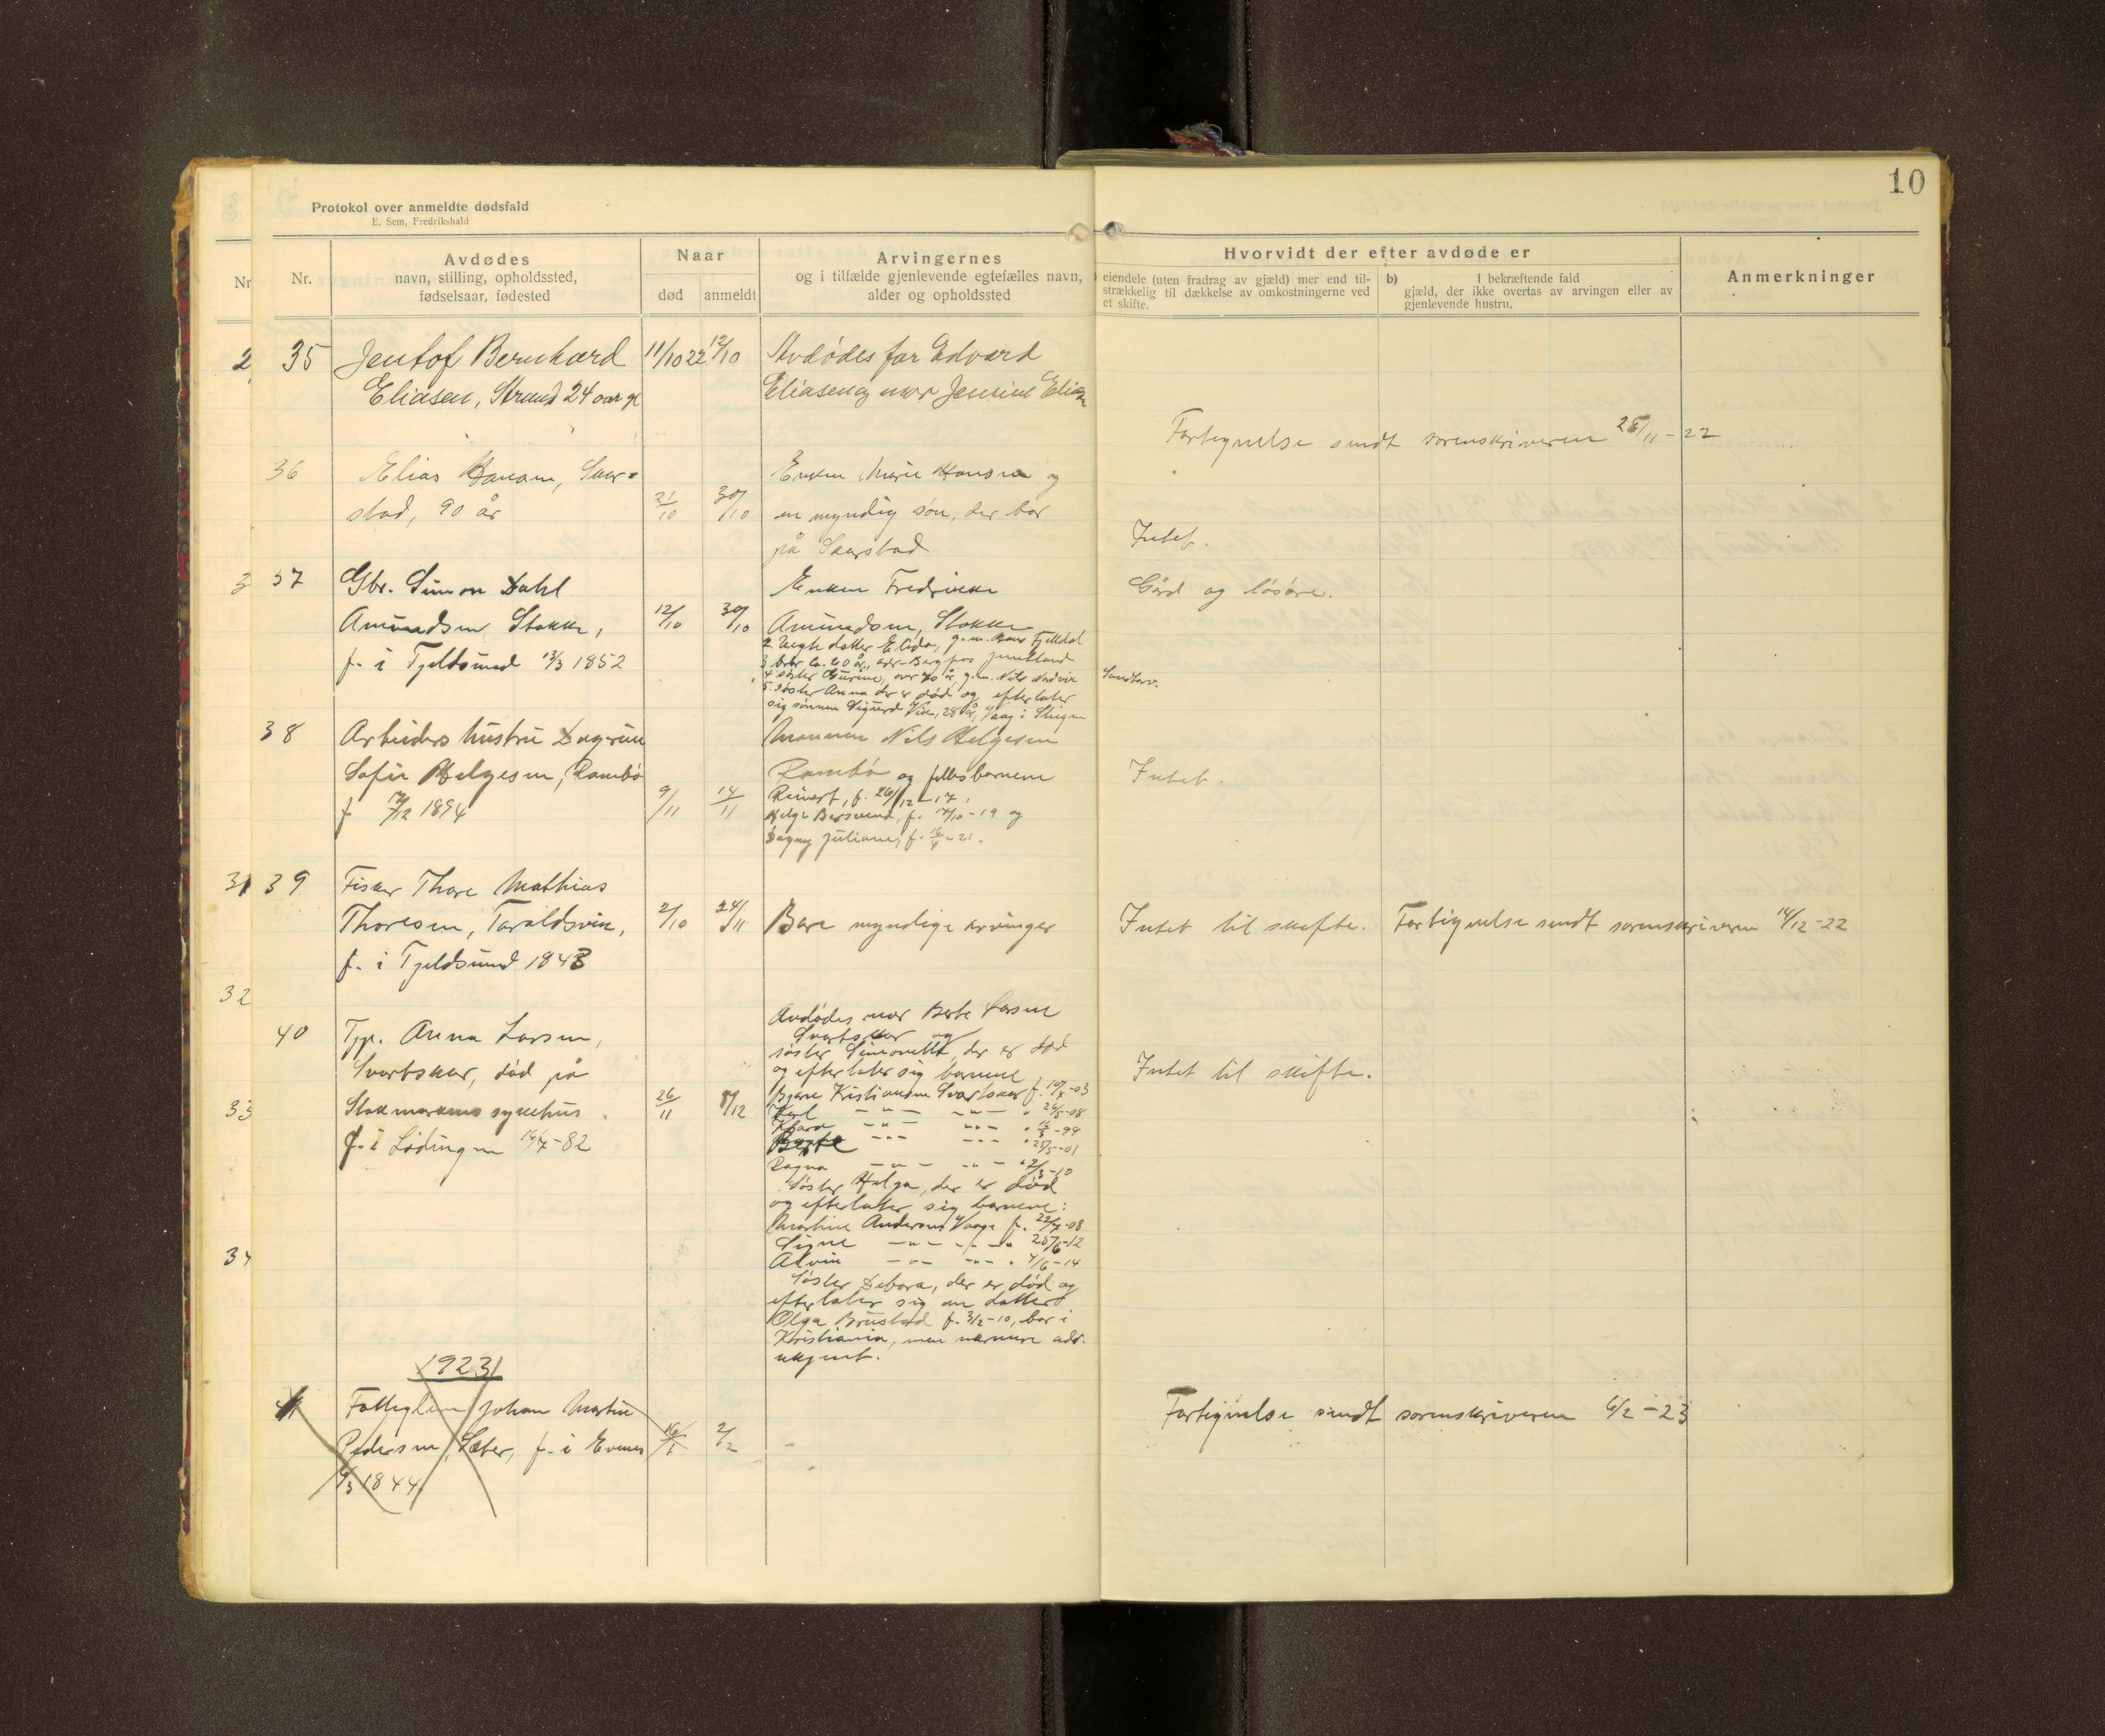 10
Protokol over anmeldte dødsfald
E. Sem, Fredrikshald
Nr
Nr.
Avdødes
navn, stilling, opholdssted,
fødselsaar, fødested
Naar
død
anmeldt
Arvingernes
og i tilfælde gjenlevende egtefælles navn,
alder og opholdssted
Hvorvidt der efter avdøde er
eiendele (uten fradrag av gjæld) mer end til-
strækkelig til dækkelse av omkostningerne ved
et skifte.
b) I bekræftende fald
gjæld, der ikke overtas av arvingen eller av
gjenlevende hustru.
Anmerkninger
35 Jentof Bernhard 11/10 22 12/10 Avdødes far Edvard
Eliasen, Strand 24 aar gl Eliasen og mor Jensine
Fortegnelse sendt sorenskriveren 28/11-22
36 Elias Hansen, Saur=
stad, 90 år 21/10 30/10
Enken Marie Hansen og
en myndig søn, der bor
på Saurstad
Intet.
37 Gbr. Simon Dahl
Amundsen, Stokke, 12/10 30/10
f. i Tjeldsund 13/3 1852
Enken Fredrikke
Amundsen, Stokke
2 datter Elida, g.m. Hans Fjelldal
4 søster Gurine, over 70 år, g.m. Nils Nordvik
5 søster Anna der er død og efterlater
sig sønnen Sigurd Vik, 28 år,
Gård og løsøre.
Sandtorv.
38 Arbeiders hustru Dagrun
Sofie Helgesen, Rambø
f. 1894 9/11 14/11
Mannen Nils Helgesen
Rambø og fellesbarnene
Reinert, f. 26/12-17,
Helge f. 17/10-19 og
Dagny Juliane, f.
Intet.
39 Fisker Thore Mathias
Thoresen, Taraldsvik, 2/10 24/11 Bare myndige arvinger
f. i Tjeldsund 1843
Intet til skifte. Fortegnelse sendt sorenskriveren 14/12-22
40 Tjp. Anna Larsen,
Svartskar, død på
Stokmarknes sykehus. 26/11
f. i Lødingen 14/4-82
Avdødes mor Berte Larsen
Svartskar og
søster Simonette, der er død
og efterlater sig barnene
Bjarne Kristiansen Svartskar f.
Karl
Klara
Berte
Ragna
Søster Helga, der er død
og efterlater sig barnene:
Martine Andersen Vaage f.
Signe
Alvin
Søster Debora, der er død og
efterlater sig en datter
Olga Brustad f. 3/2-10, bor i
Kristiania, men nærmere adr.
ukjent.
Intet til skifte.
1923
41 Fattiglem Johan Martin
Pedersen, Sæter, f. i Evenes 16/1 2/2
1844
Fortegnelse sendt sorenskriveren 6/2-23
32
33
34